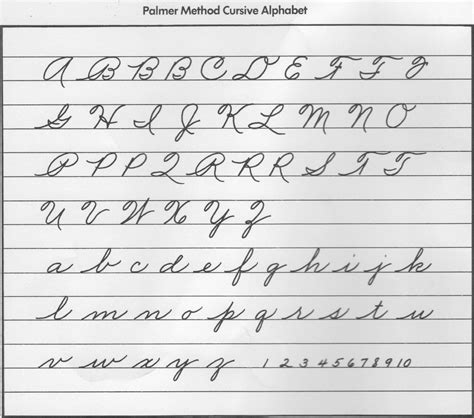 Palmer Method Cursive Alphabet
A B B B C D E F F F
G H I J K L M N O
P P P Q R R R S T T
U V W X Y Z
a b c d e f g h i j k
l m n o p q r s t u
v w x y z 1 2 3 4 5 6 7 8 9 10